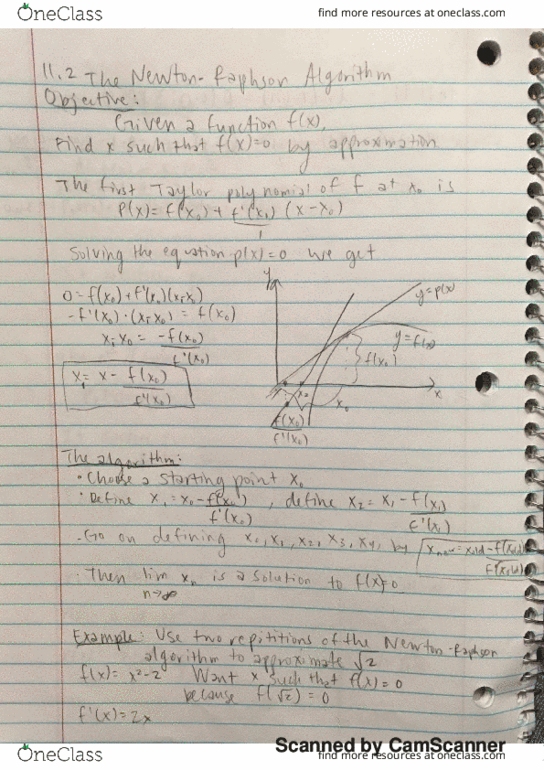 OneClass
find more resources at oneclass.com
11.2 The Newton-Raphson Algorithm
Objective:
Given a function f(x),
Find x such that f(x)=0 by approximation
The first Taylor polynomial of f at x₀ is
P(x) = f(x₀) + f'(x₀) (x-x₀)
1
Solving the equation p(x)=0 we get
0 = f(x₀) + f'(x₀)(x₁-x₀)
-f'(x₀)·(x₁-x₀) = f(x₀)
x₁-x₀ = -f(x₀)
f'(x₀)
x₁ = x - f(x₀)
f'(x₀)
y
y=p(x)
y=f(x)
f(x₀)
x
x₀
f(x₀)
f'(x₀)
The algorithm:
• Choose a starting point x₀
• Define x₁ = x₀ - f(x₀) , define x₂ = x₁ - f(x₁)
f'(x₀) f'(x₁)
· Go on defining x₀, x₁, x₂, x₃, x₄, by x new = x old - f(x old)
f(x old)
· Then lim xₙ is a solution to f(x)=0
n→∞
Example: Use two repititions of the Newton-Raphson
algorithm to approximate √2
f(x) = x²-2 Want x such that f(x)=0
because f(√2) = 0
f'(x) = 2x
Scanned by CamScanner
OneClass
find more resources at oneclass.com